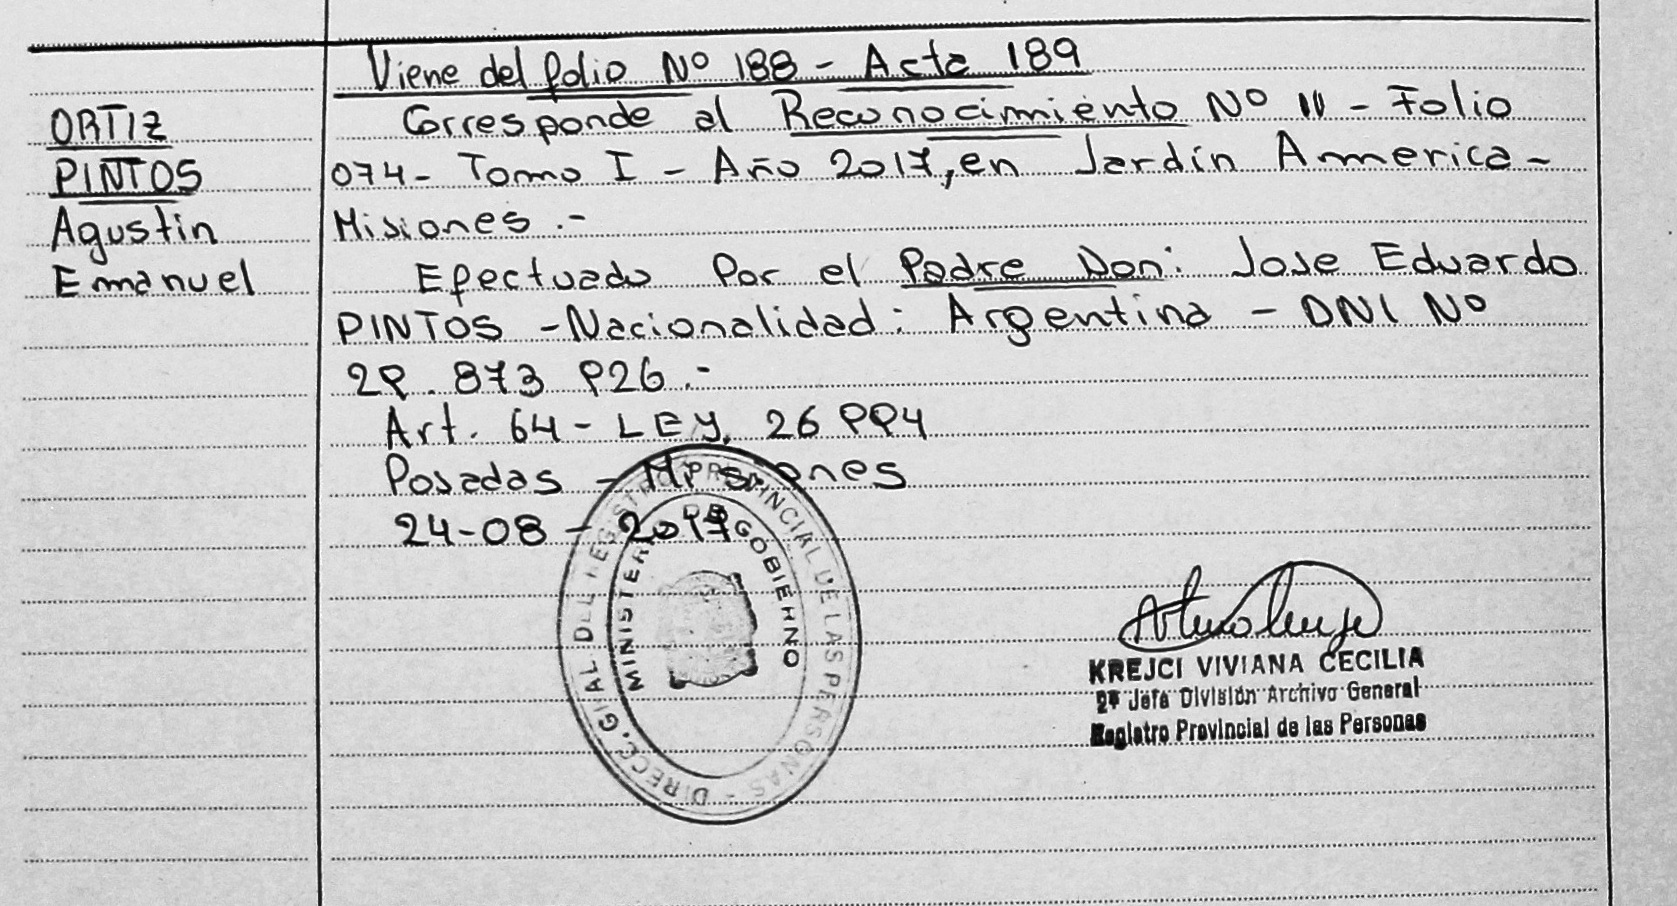 Viene del folio Nº 188 - Acta 189
ORTIZ
PINTOS
Agustin
Emanuel
Corresponde al Reconocimiento Nº 11 - Folio
074 - Tomo I - Año 2017, en Jardín America -
Misiones .-
Efectuado Por el Padre Don: Jose Eduardo
PINTOS - Nacionalidad: Argentina - DNI Nº
29.873 926.-
Art. 64 - LEY. 26 994
Posadas - Misiones
24-08-2017
DIRECC. GRAL DEL REGISTRO PROVINCIAL DE LAS PERSONAS -
MINISTERIO DE GOBIERNO
KREJCI VIVIANA CECILIA
2ª Jefa División Archivo General
Registro Provincial de las Personas